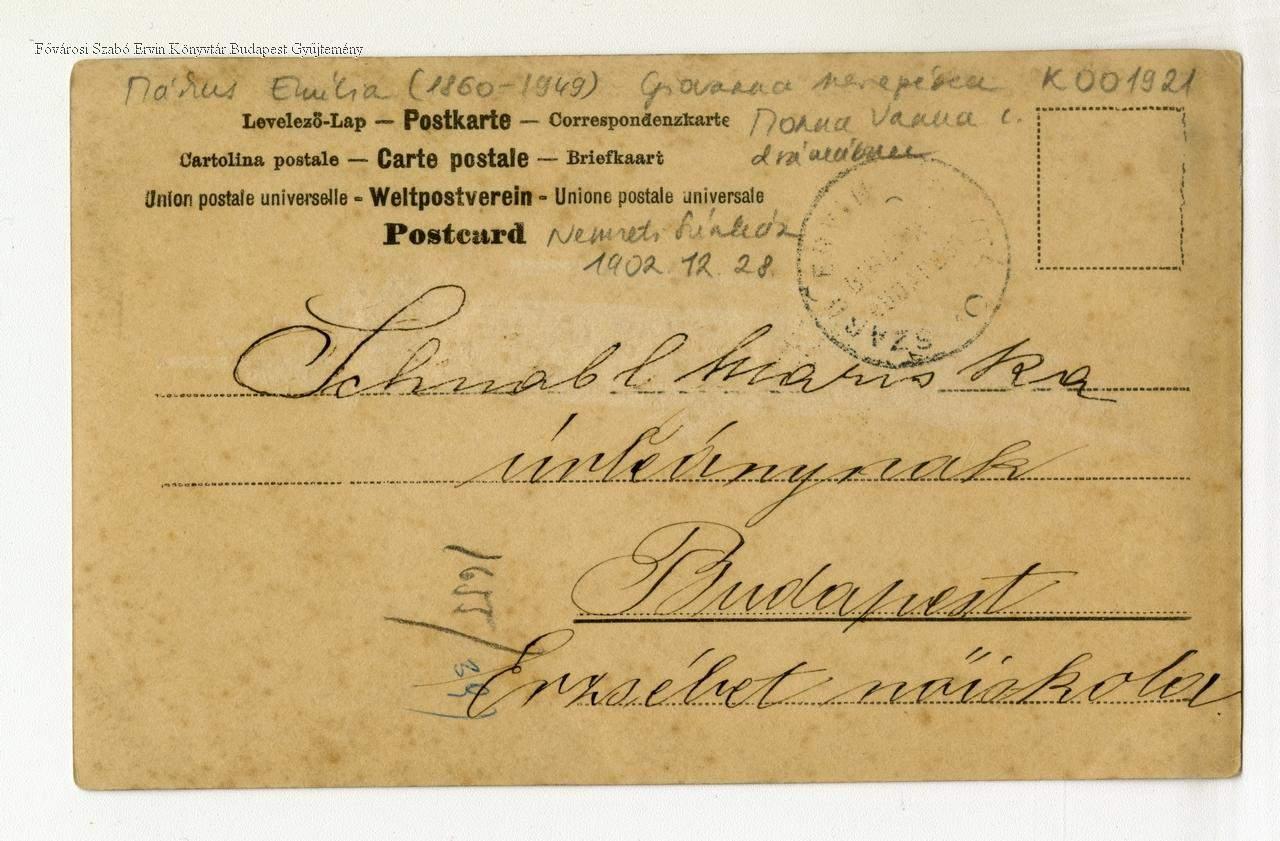 Fővárosi Szabó Ervin Könyvtár Budapest Gyűjtemény
Márkus Emília (1860-1949) Giovanna szerepében K001921
Levelező-Lap — Postkarte — Correspondenzkarte Monna Vanna c.
Cartolina postale — Carte postale — Briefkaart drámában
Union postale universelle - Weltpostverein - Unione postale universale
Postcard Nemzeti Színház
1902. 12. 28.
Schnabl Mariska
úrleánynak
Budapest
Erzsébet nőiskola